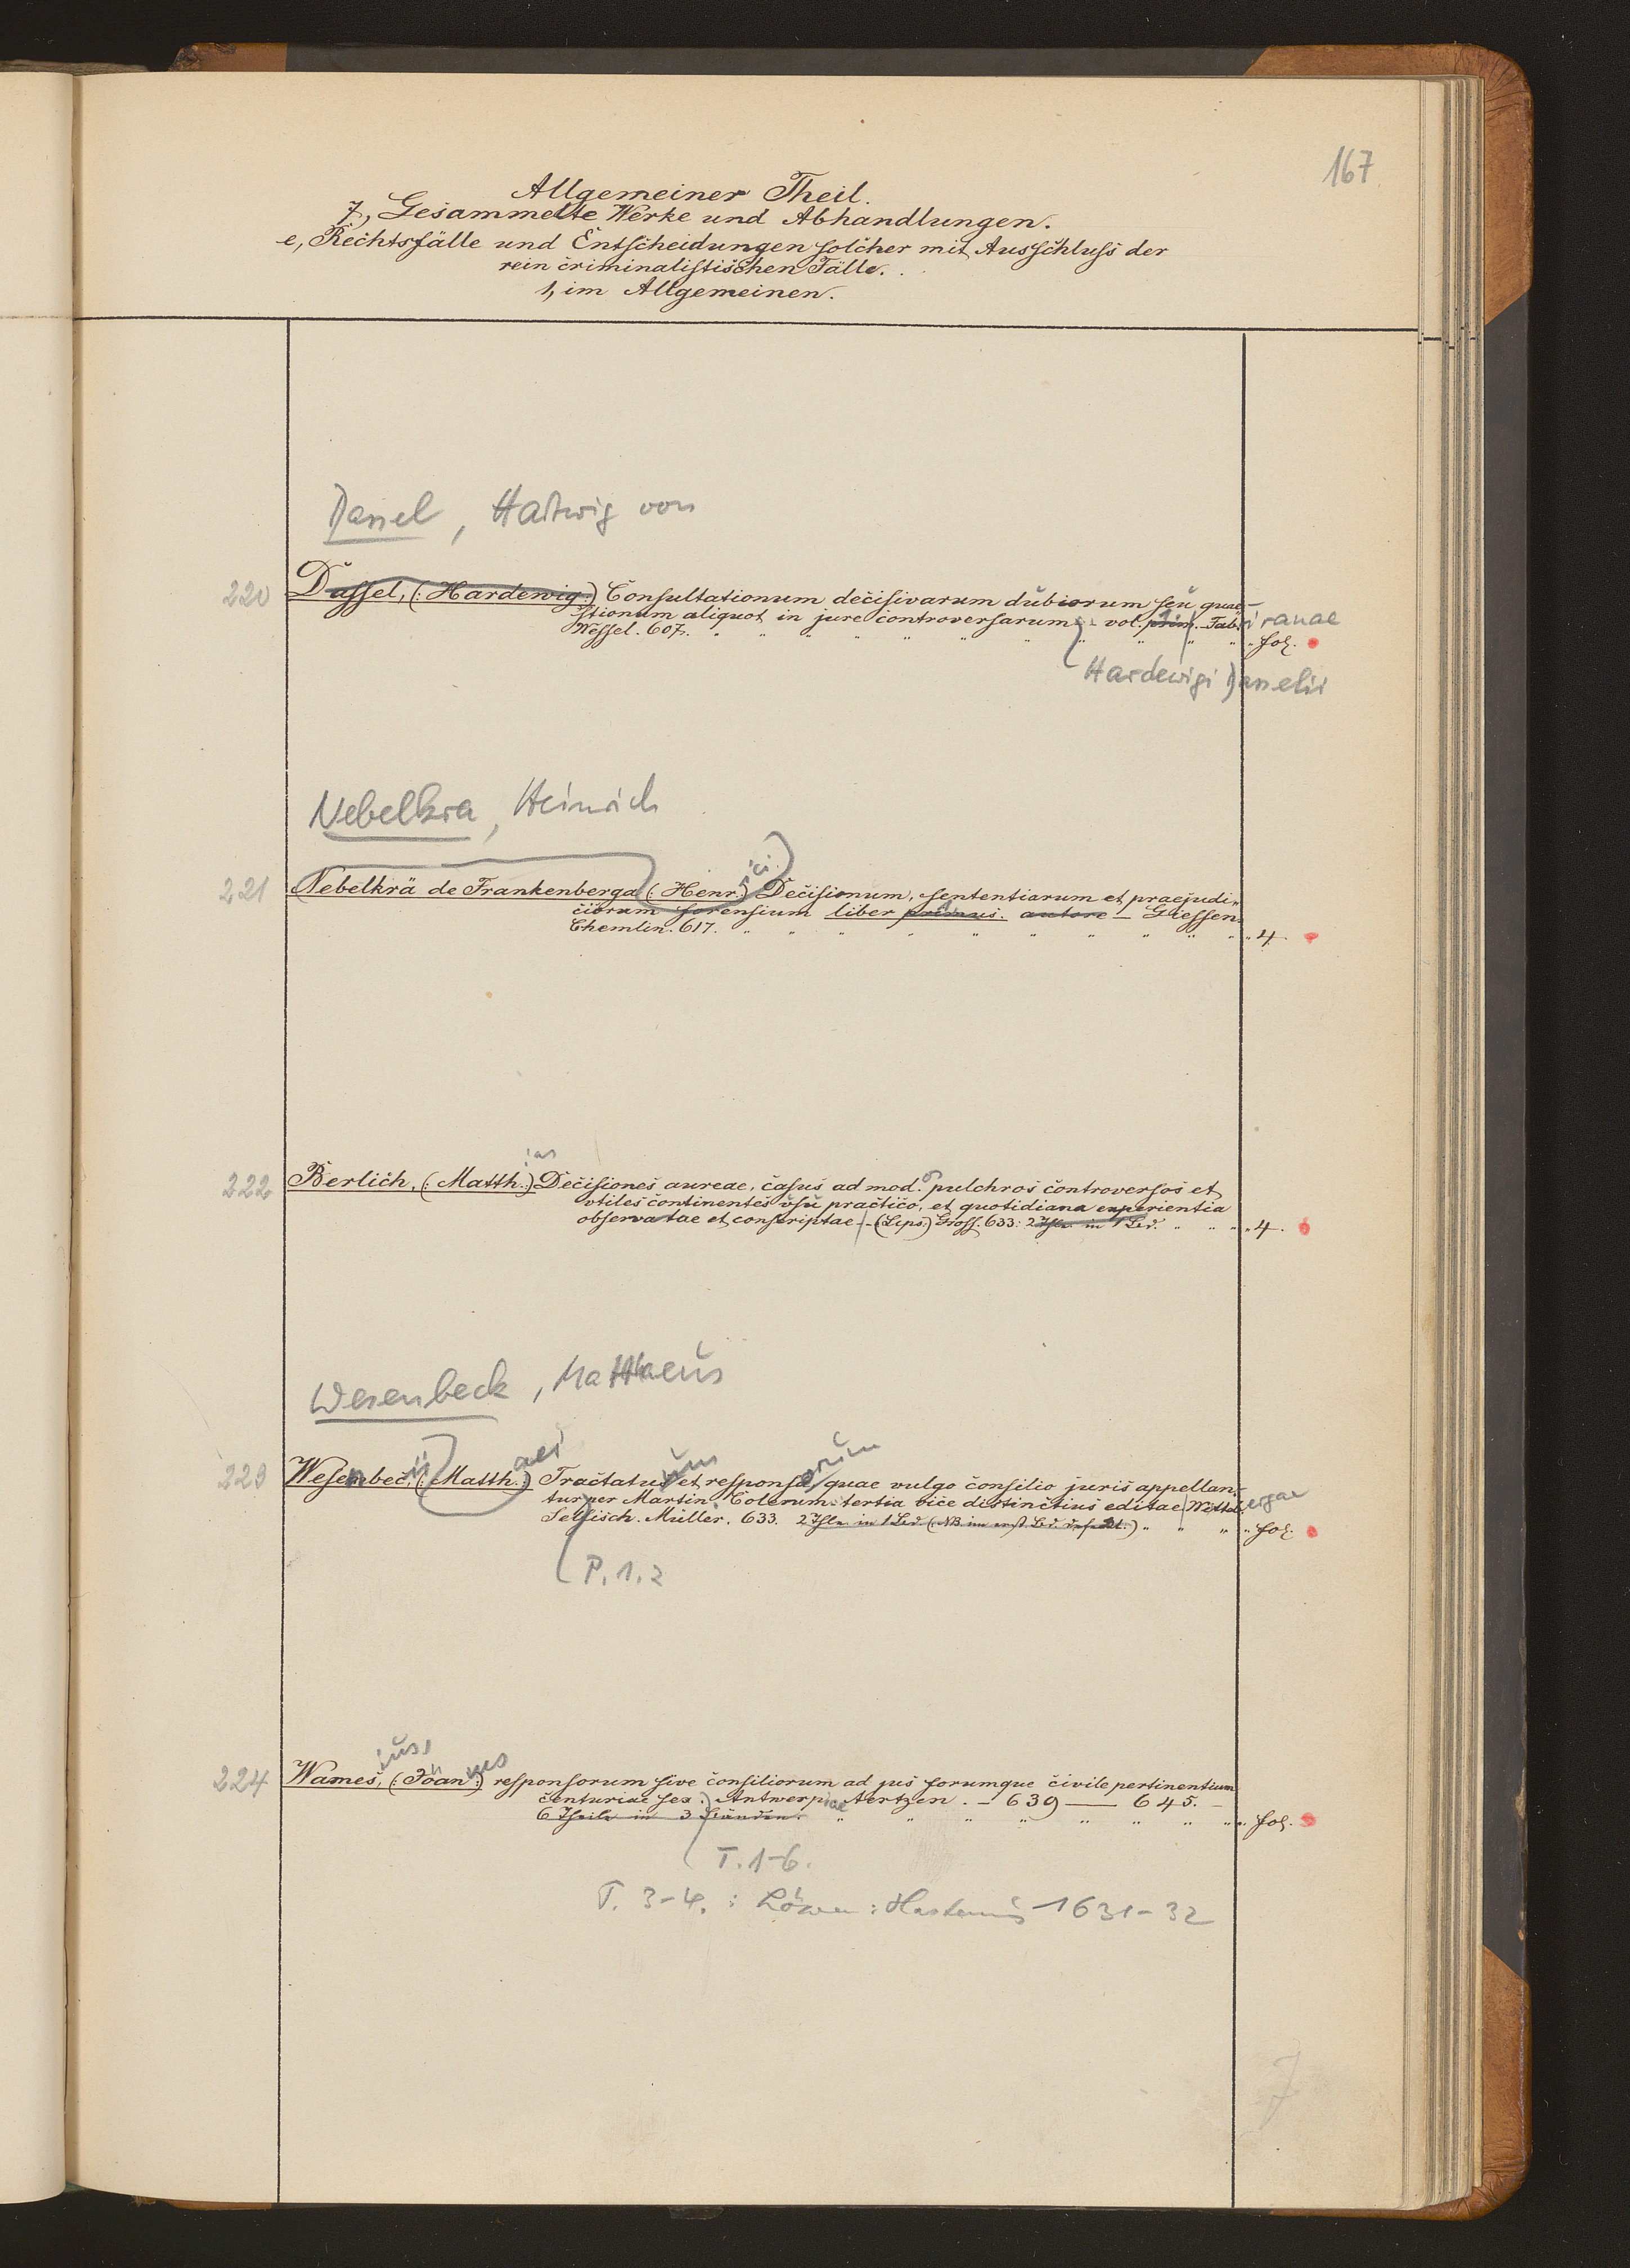 167
Allgemeiner Theil.
7, Gesammelte Werke und Abhandlungen.
e, Rechtsfälle und Entscheidungen solcher mit Ausschluss der
rein criminalistischen Fälle.
1, im Allgemeinen.
Dassel, Hartwig von
220 Dassel, (: Hardewig :) Consultationum decisivarum dubiorum seu quae-
stionum aliquot in jure controversarum - vol. prim. - Tab. iranae
Wessel. 607. fol.
Hardewigi Dasselii
Nebelkra, Heinrich
221 Nebelkrä de Frankenberga (: Henr. :) rici Decisionum, sententiarum et praejudi-
ciorum forensium liber primus. autore - Giessen.
Chemlin. 617. 4.
ias
222 Berlich, (: Matth. :) Decisiones aureae, casus ad mod. o pulchros controversos et
vtiles continentes vsu practico, et quotidiana experientia
observatae et conscriptae - (Lips.) Gross. 633: 2 Thle in 1 Bd. 4.
Wesenbeck, Matthaeus
223 Wesenbec, ii (: Matth. :) aei Tractatus uum et responsa orum quae vulgo consilio juris appellan-
tur per Martin. Colerum tertia vice distinctius editae Witteb. ergae
Selfisch. Müller. 633. 2 Thle in 1 Bd. (NB. im erst. Bd. defekt.) fol.
P. 1. 2
ius,
224 Wames, (: Joan :) nes responsorum sive consiliorum ad jus forumque civile pertinentium
centuriae sex. Antwerp iae Aertzen. - 639 — 645. -
6 Theile in 3 Bänden. fol.
T. 1-6.
T. 3-4. : Löwen : Hastenius 1631-32
7